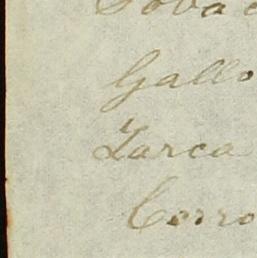 Gallo
Zarca
Cerro